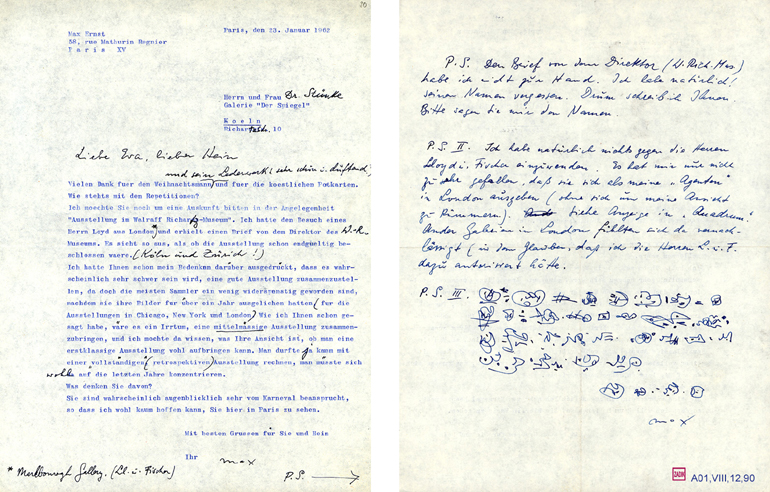 50
Max Ernst
58, rue Mathurin Regnier
Paris XV
Paris, den 23. Januar 1962
Herrn und Frau Dr. Stünke
Galerie "Der Spiegel"
Koeln
Richartzstr. 10
Liebe Eva, lieber Hein
und sein Lederwerk (sehr schön u. duftend)
Vielen Dank fuer den Weihnachtsmann, und fuer die koestlichen Potkarten.
Wie stehts mit den Repetitionen?
Ich moechte Sie noch um eine Auskunft bitten in der Angelegenheit
"Ausstellung im Walraff Richartz-Museum". Ich hatte den Besuch eines
Herrn Loyd aus London* und erhielt einen Brief von dem Direktor des W.-R.
Museums. Es sieht so aus, als ob die Ausstellung schon endgueltig be-
schlossen waere. (Köln und Zürich!)
Ich hatte Ihnen schon mein Bedenken darüber ausgedrückt, dass es wahr-
scheinlich sehr schwer sein wird, eine gute Ausstellung zusammenzustel-
len, da doch die meisten Sammler ein wenig widerspenstig geworden sind,
nachdem sie ihre Bilder für über ein Jahr ausgeliehen hatten (für die
Ausstellungen in Chicago, New York und London). Wie ich Ihnen schon ge-
sagt habe, wäre es ein Irrtum, eine mittelmässige Ausstellung zusammen-
zubringen, und ich mochte da wissen, was Ihre Ansicht ist, ob man eine
erstklassige Ausstellung wohl aufbringen kann. Man durfte ja kaum mit
einer vollständigen (retrospektiven) Ausstellung rechnen, man müsste sich
wohl auf die letzten Jahre konzentrieren.
Was denken Sie davon?
Sie sind wahrscheinlich augenblicklich sehr vom Karneval beansprucht,
so dass ich wohl kaum hoffen kann, Sie hier in Paris zu sehen.
Mit besten Gruessen für Sie und Hein
Ihr max
* Marlborough Gallery. (Ll. u. Fischer)
P.S. →
P.S. Den Brief von dem Direktor (W. Rich. Mus.)
habe ich nicht zur Hand. Ich habe natürlich
seinen Namen vergessen. Drum schreib ich Ihnen.
Bitte sagen Sie mir den Namen.
P.S. II. Ich habe natürlich nichts gegen die Herren
Lloyd u. Fischer einzuwenden. Es hat mir nur nicht
zu sehr gefallen, daß sie sich als meine "Agenten"
in London ausgeben (ohne sich um meine Ansicht
zu kümmern). Siehe Anzeige in "Quadrum".
Andere Galerien in London fühlten sich da vernach-
lässigt (in dem Glauben, daß ich die Herren L. u. F.
dazu autorisiert hätte.
P.S. III.
max
ZADIK
A01,VIII,12,90